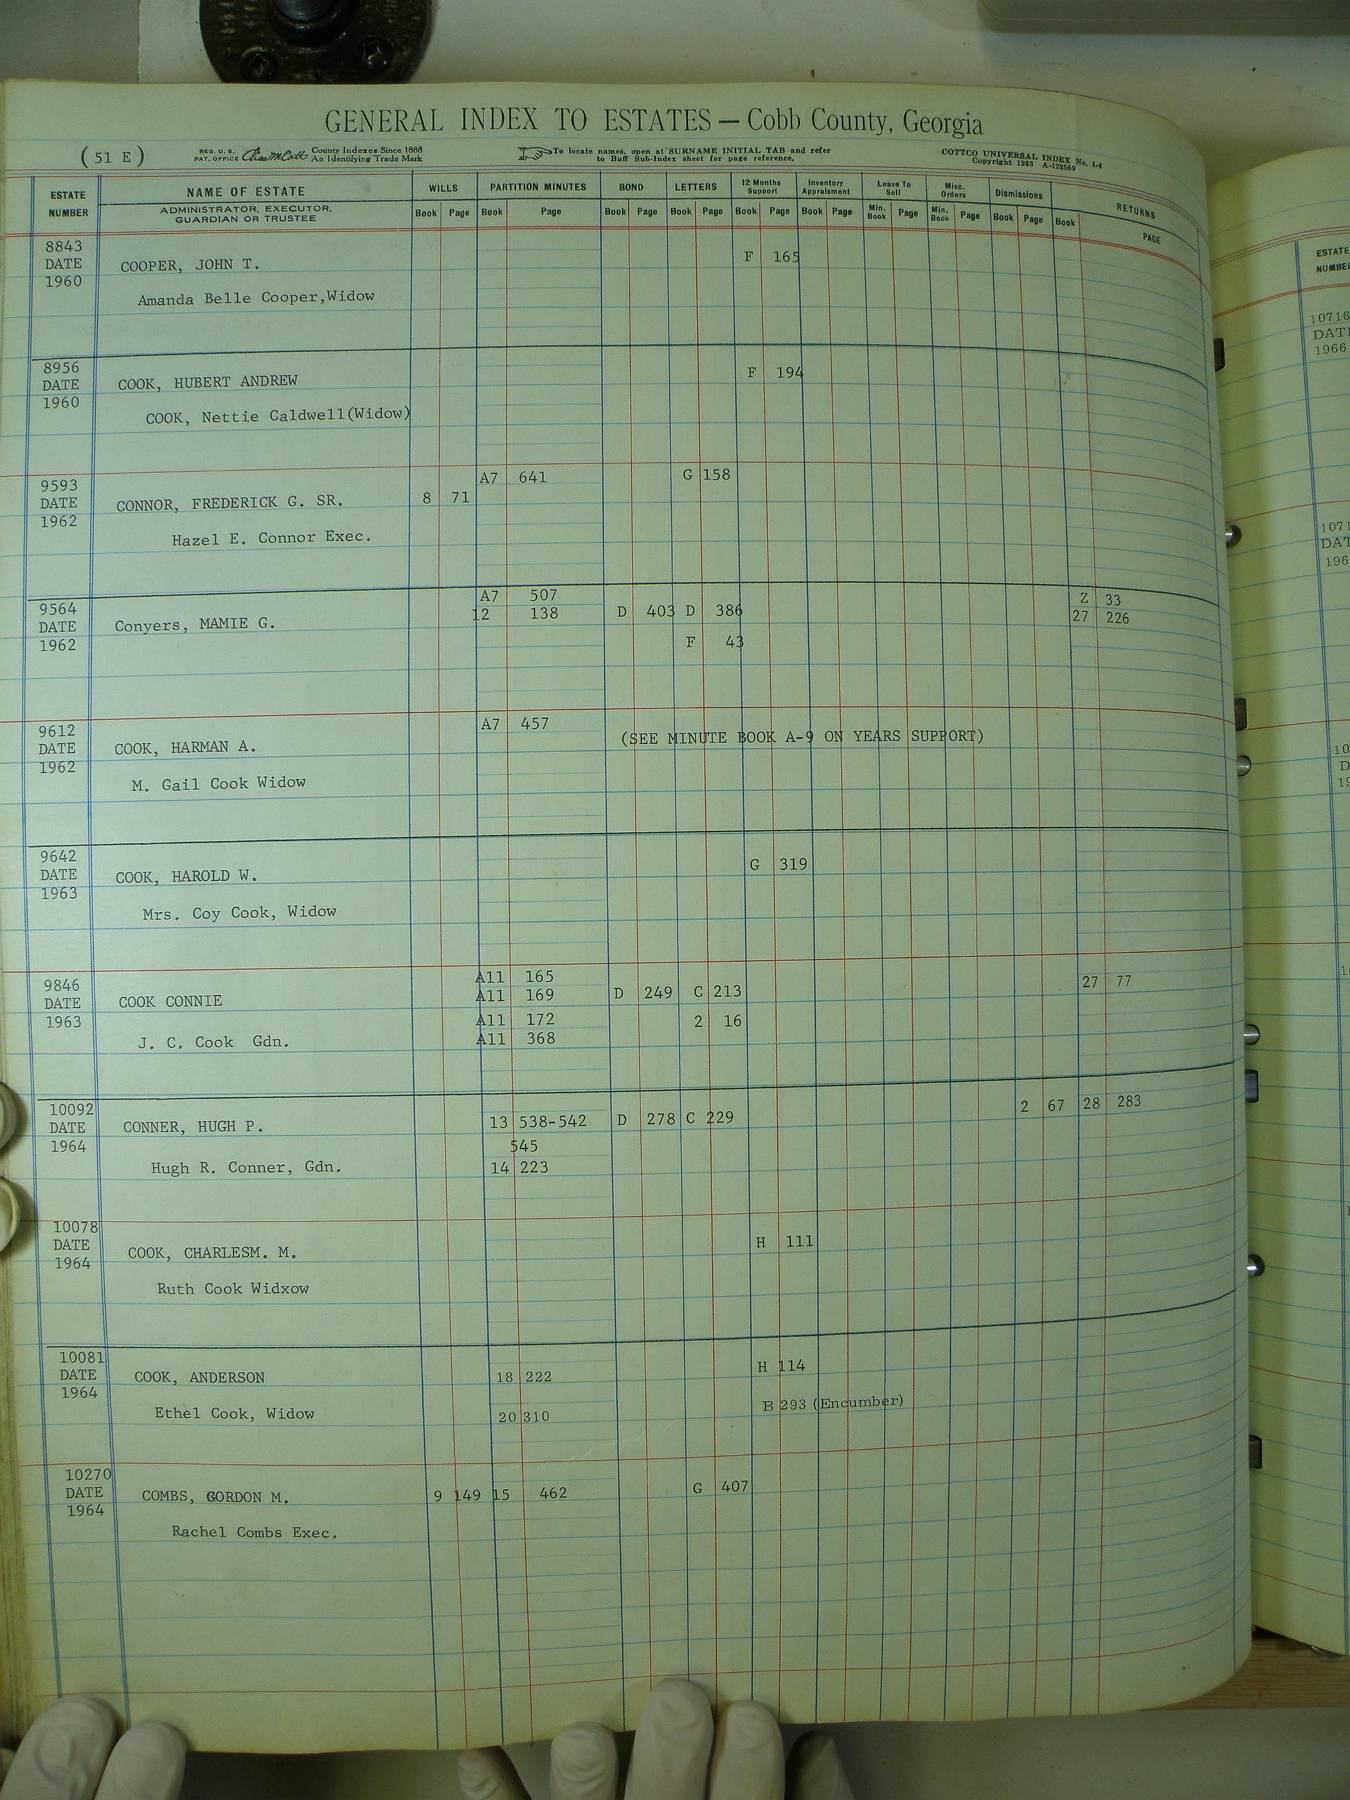 GENERAL INDEX TO ESTATES — Cobb County, Georgia
(51 E) REG. U. S. PAT. OFFICE County Indexes Since 1888 An Identifying Trade Mark To locate names, open at SURNAME INITIAL TAB and refer to Buff Sub-Index sheet for page reference. COTTCO UNIVERSAL INDEX No. 1-4
Copyright 1923 A-122569
ESTATE NUMBER NAME OF ESTATE WILLS PARTITION MINUTES BOND LETTERS 12 Months Support Inventory Appraisment Leave To Sell Misc. Orders Dismissions RETURNS
ADMINISTRATOR, EXECUTOR, GUARDIAN OR TRUSTEE Book Page Book Page Book Page Book Page Book Page Book Page Min. Book Page Min. Book Page Book Page Book PAGE
8843
DATE COOPER, JOHN T. F 165
1960
Amanda Belle Cooper,Widow
8956
DATE COOK, HUBERT ANDREW F 194
1960
COOK, Nettie Caldwell(Widow)
A7 641 G 158
9593
DATE CONNOR, FREDERICK G. SR. 8 71
1962
Hazel E. Connor Exec.
A7 507 Z 33
9564 12 138 D 403 D 386 27 226
DATE Conyers, MAMIE G.
1962 F 43
A7 457
9612 (SEE MINUTE BOOK A-9 ON YEARS SUPPORT)
DATE COOK, HARMAN A.
1962
M. Gail Cook Widow
9642
DATE COOK, HAROLD W. G 319
1963
Mrs. Coy Cook, Widow
A11 165 27 77
9846 A11 169 D 249 C 213
DATE COOK CONNIE
1963 A11 172 2 16
J. C. Cook Gdn. A11 368
10092 2 67 28 283
DATE CONNER, HUGH P. 13 538-542 D 278 C 229
1964 545
Hugh R. Conner, Gdn. 14 223
10078
DATE COOK, CHARLESM. M. H 111
1964
Ruth Cook Widxow
10081
DATE COOK, ANDERSON 18 222 H 114
1964
Ethel Cook, Widow 20 310 B 293 (Encumber)
10270
DATE COMBS, GORDON M. 9 149 15 462 G 407
1964
Rachel Combs Exec.
ESTATE
10716
DAT
1966
1071
DAT
196